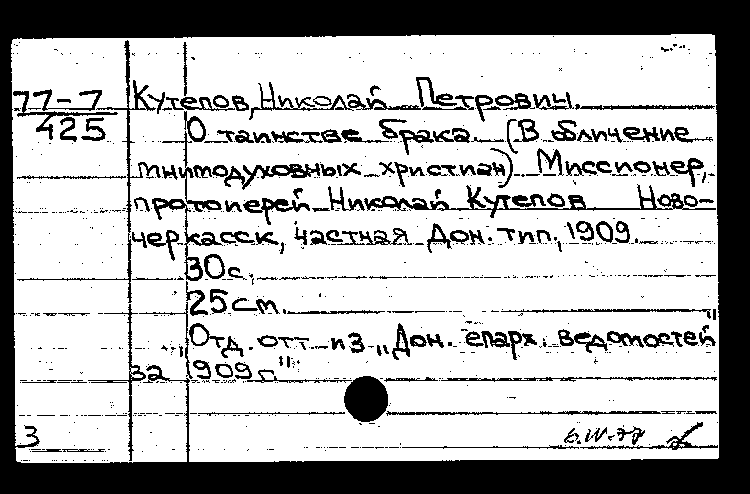 77-7 Кутепов, Николай Петрович.
425 О таинстве брака. (В обличение
мнимодуховных христиан) Миссионер,
протоиерей Николай Кутепов. Ново-
черкасск, Частная Дон. тип., 1909.
30с.
25см.
„Отд. отт. из „Дон. епарх. ведомостей"
за 1909 г."
3